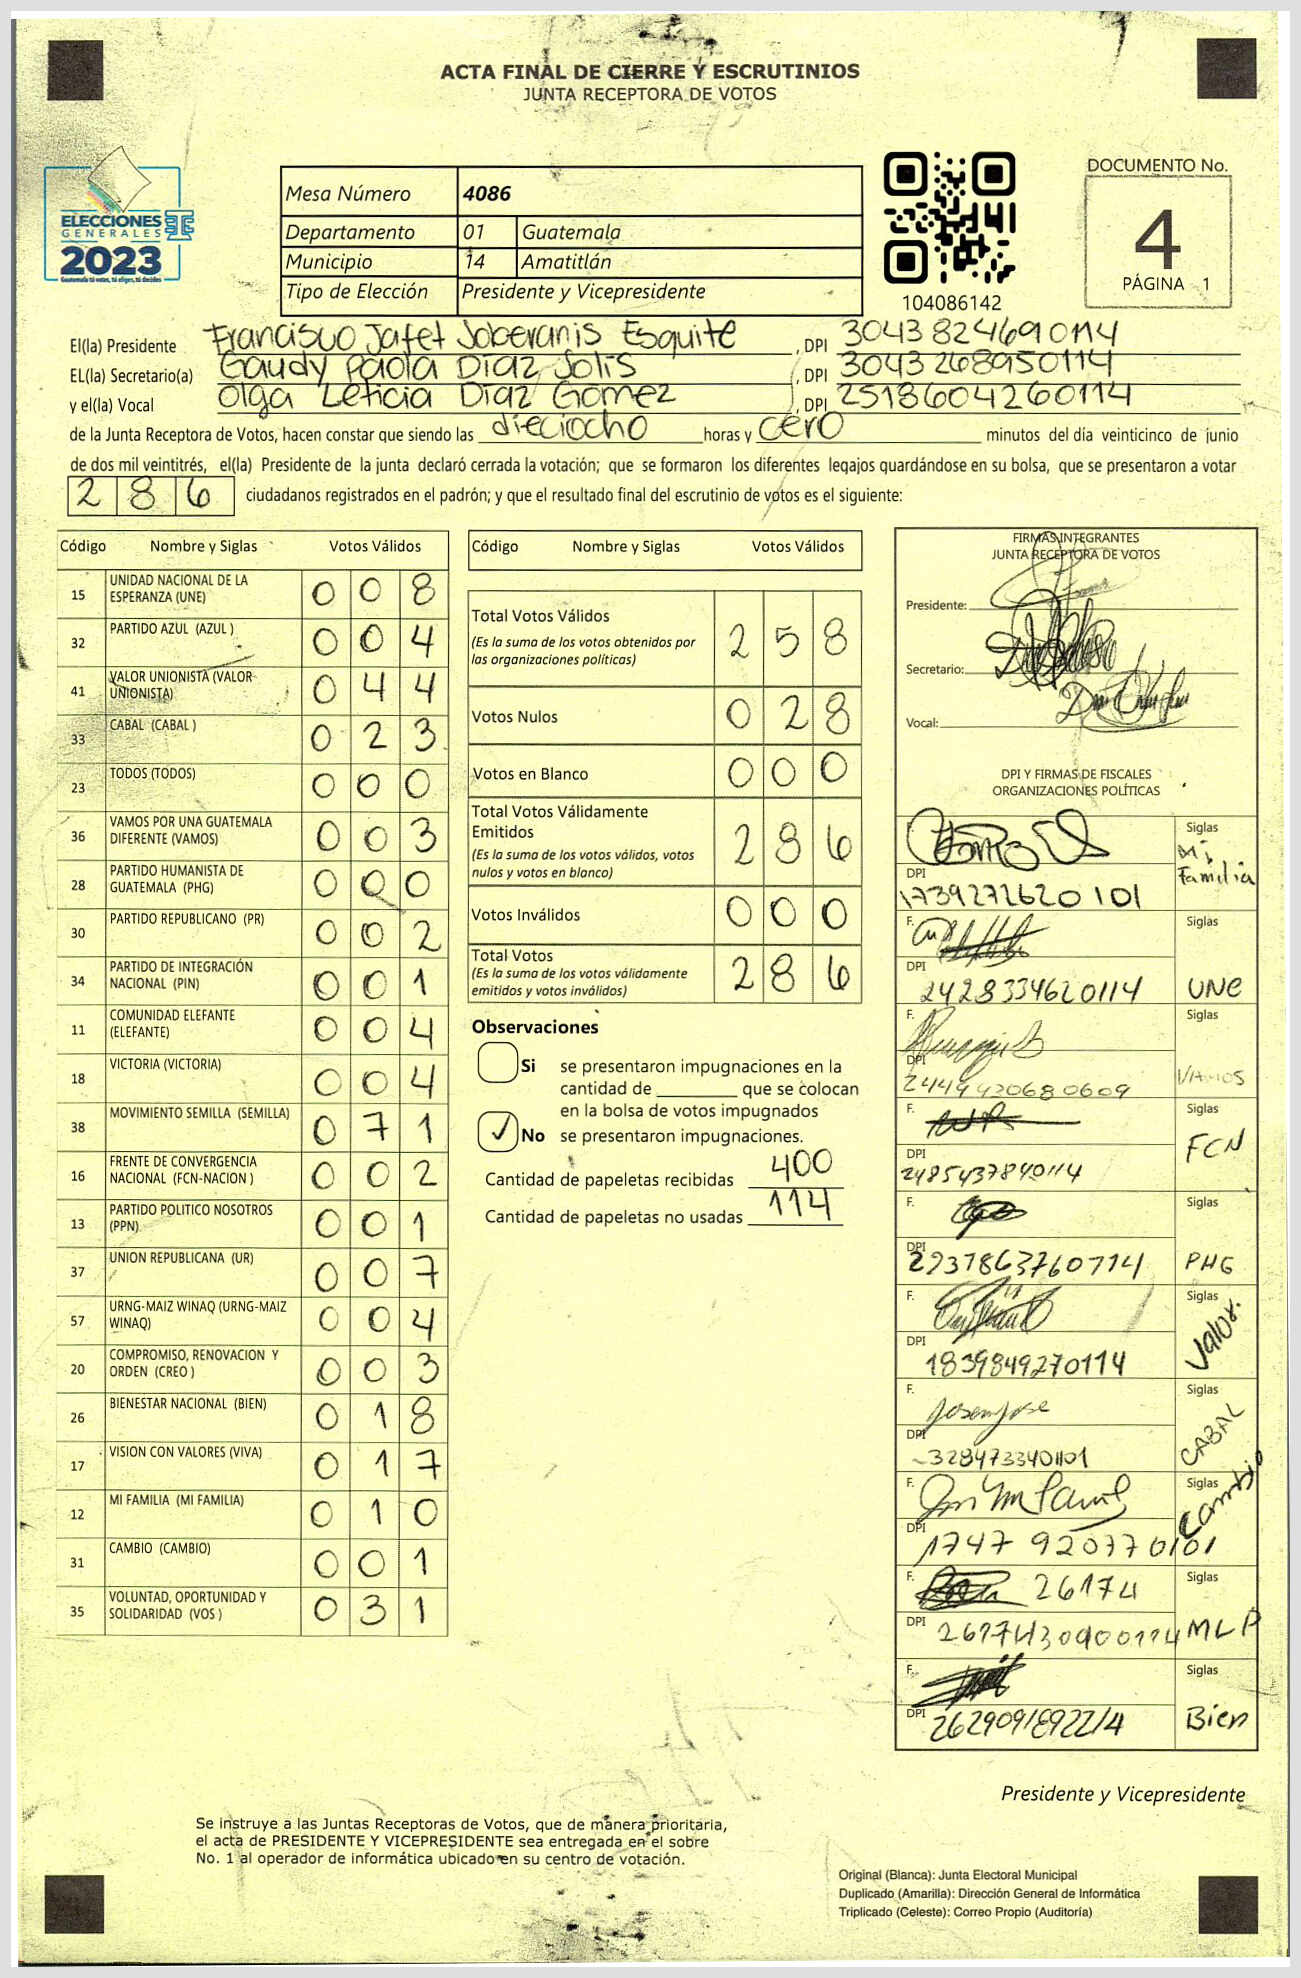 ACTA FINAL DE CIERRE Y ESCRUTINIOS
JUNTA RECEPTORA DE VOTOS
ELECCIONES
GENERALES
2023
Guatemala tú votas, tú eliges, tú decides
Mesa Número 4086
Departamento 01 Guatemala
Municipio 14 Amatitlán
Tipo de Elección Presidente y Vicepresidente
104086142
DOCUMENTO No.
4
PÁGINA 1
El(la) Presidente Francisco Jafet Soberanis Esquite, DPI 3043824690114
EL(la) Secretario(a) Gaudy Paola Díaz Solis, DPI 3043268950114
y el(la) Vocal Olga Leticia Díaz Gomez, DPI 2518604260114
de la Junta Receptora de Votos, hacen constar que siendo las dieciocho horas y cero minutos del día veinticinco de junio
de dos mil veintitrés, el(la) Presidente de la junta declaró cerrada la votación; que se formaron los diferentes legajos quardándose en su bolsa, que se presentaron a votar
286 ciudadanos registrados en el padrón; y que el resultado final del escrutinio de votos es el siguiente:
Código Nombre y Siglas Votos Válidos
15 UNIDAD NACIONAL DE LA ESPERANZA (UNE) 0 0 8
32 PARTIDO AZUL (AZUL ) 0 0 4
41 VALOR UNIONISTA (VALOR UNIONISTA) 0 4 4
33 CABAL (CABAL ) 0 2 3
23 TODOS (TODOS) 0 0 0
36 VAMOS POR UNA GUATEMALA DIFERENTE (VAMOS) 0 0 3
28 PARTIDO HUMANISTA DE GUATEMALA (PHG) 0 0 0
30 PARTIDO REPUBLICANO (PR) 0 0 2
34 PARTIDO DE INTEGRACIÓN NACIONAL (PIN) 0 0 1
11 COMUNIDAD ELEFANTE (ELEFANTE) 0 0 4
18 VICTORIA (VICTORIA) 0 0 4
38 MOVIMIENTO SEMILLA (SEMILLA) 0 7 1
16 FRENTE DE CONVERGENCIA NACIONAL (FCN-NACION ) 0 0 2
13 PARTIDO POLITICO NOSOTROS (PPN) 0 0 1
37 UNION REPUBLICANA (UR) 0 0 7
57 URNG-MAIZ WINAQ (URNG-MAIZ WINAQ) 0 0 4
20 COMPROMISO, RENOVACION Y ORDEN (CREO ) 0 0 3
26 BIENESTAR NACIONAL (BIEN) 0 1 8
17 VISION CON VALORES (VIVA) 0 1 7
12 MI FAMILIA (MI FAMILIA) 0 1 0
31 CAMBIO (CAMBIO) 0 0 1
35 VOLUNTAD, OPORTUNIDAD Y SOLIDARIDAD (VOS ) 0 3 1
Código Nombre y Siglas Votos Válidos
Total Votos Válidos 2 5 8
(Es la suma de los votos obtenidos por
las organizaciones políticas)
Votos Nulos 0 2 8
Votos en Blanco 0 0 0
Total Votos Válidamente
Emitidos 2 8 6
(Es la suma de los votos válidos, votos
nulos y votos en blanco)
Votos Inválidos 0 0 0
Total Votos 2 8 6
(Es la suma de los votos válidamente
emitidos y votos inválidos)
Observaciones
Si se presentaron impugnaciones en la
cantidad de ________ que se colocan
en la bolsa de votos impugnados
✓ No se presentaron impugnaciones.
Cantidad de papeletas recibidas 400
Cantidad de papeletas no usadas 114
FIRMAS INTEGRANTES
JUNTA RECEPTORA DE VOTOS
Presidente:
Secretario:
Vocal:
DPI Y FIRMAS DE FISCALES
ORGANIZACIONES POLÍTICAS
Siglas Mi Familia
DPI 1739272620101
F. Siglas
DPI 2428334620114 UNE
F. Siglas
DPI 2449420680609 VAMOS
F. Siglas
DPI 2485437840114 FCN
F. Siglas
DPI 2237863760714 PHG
F. Siglas
DPI 1839849270114 Valor.
F. Siglas
DPI 328473340101 CABAL
F. Siglas
DPI 1747 920770101 Cambio
F. 26174 Siglas
DPI 2617430900114 MLP
F. Siglas
DPI Bien
Presidente y Vicepresidente
Se instruye a las Juntas Receptoras de Votos, que de manera prioritaria,
el acta de PRESIDENTE Y VICEPRESIDENTE sea entregada en el sobre
No. 1 al operador de informática ubicado en su centro de votación.
Original (Blanca): Junta Electoral Municipal
Duplicado (Amarilla): Dirección General de Informática
Triplicado (Celeste): Correo Propio (Auditoría)